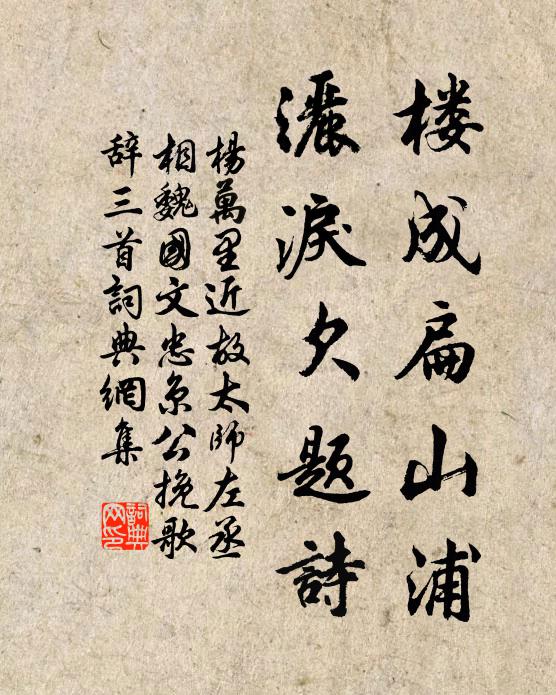 楼成扁山浦
灑淚欠题詩
楊萬里近故太師左丞
相魏國文忠京公挽歌
辞三首詞典網集
詞典
网印